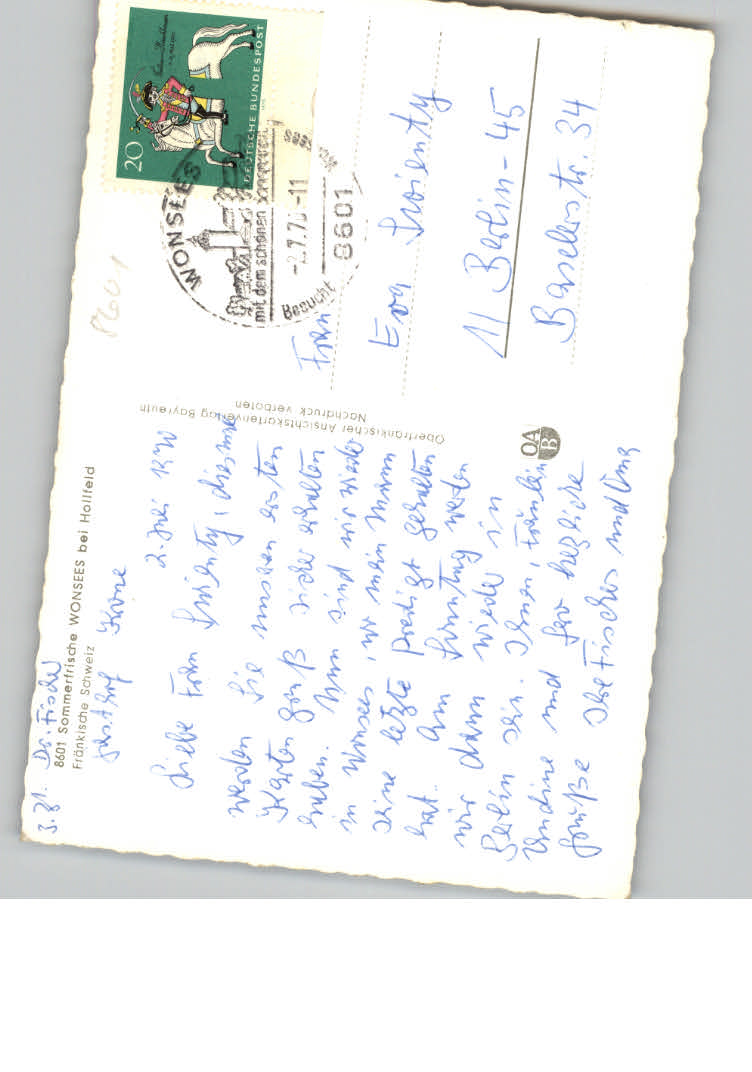 z.Zt. Dr. Fischer
8601 Sommerfrische WONSEES bei Hollfeld
Fränkische Schweiz
Gasthof Krone
2. Juli 1970
Liebe Frau Swienty, diesmal
werden Sie unseren ersten
Karten gruß sicher erhalten
haben. Nun sind wir wieder
in Wonsees, wo mein Mann
seine letzte Predigt gehalten
hat. Am Sonntag werden
wir dann wieder in
Berlin sein. Ihnen, Fräulein
Undine und sehr herzliche
Grüße Ihre Fischer und
Oberfränkischer Ansichtskartenverlag Bayreuth
Nachdruck verboten
OA
B
20
DEUTSCHE BUNDESPOST
WONSEES
mit dem schönen
-2.7.70-11
8601
Besucht
8601
Frau
Eva Swienty
1/ Berlin-45
Baselerstr. 34